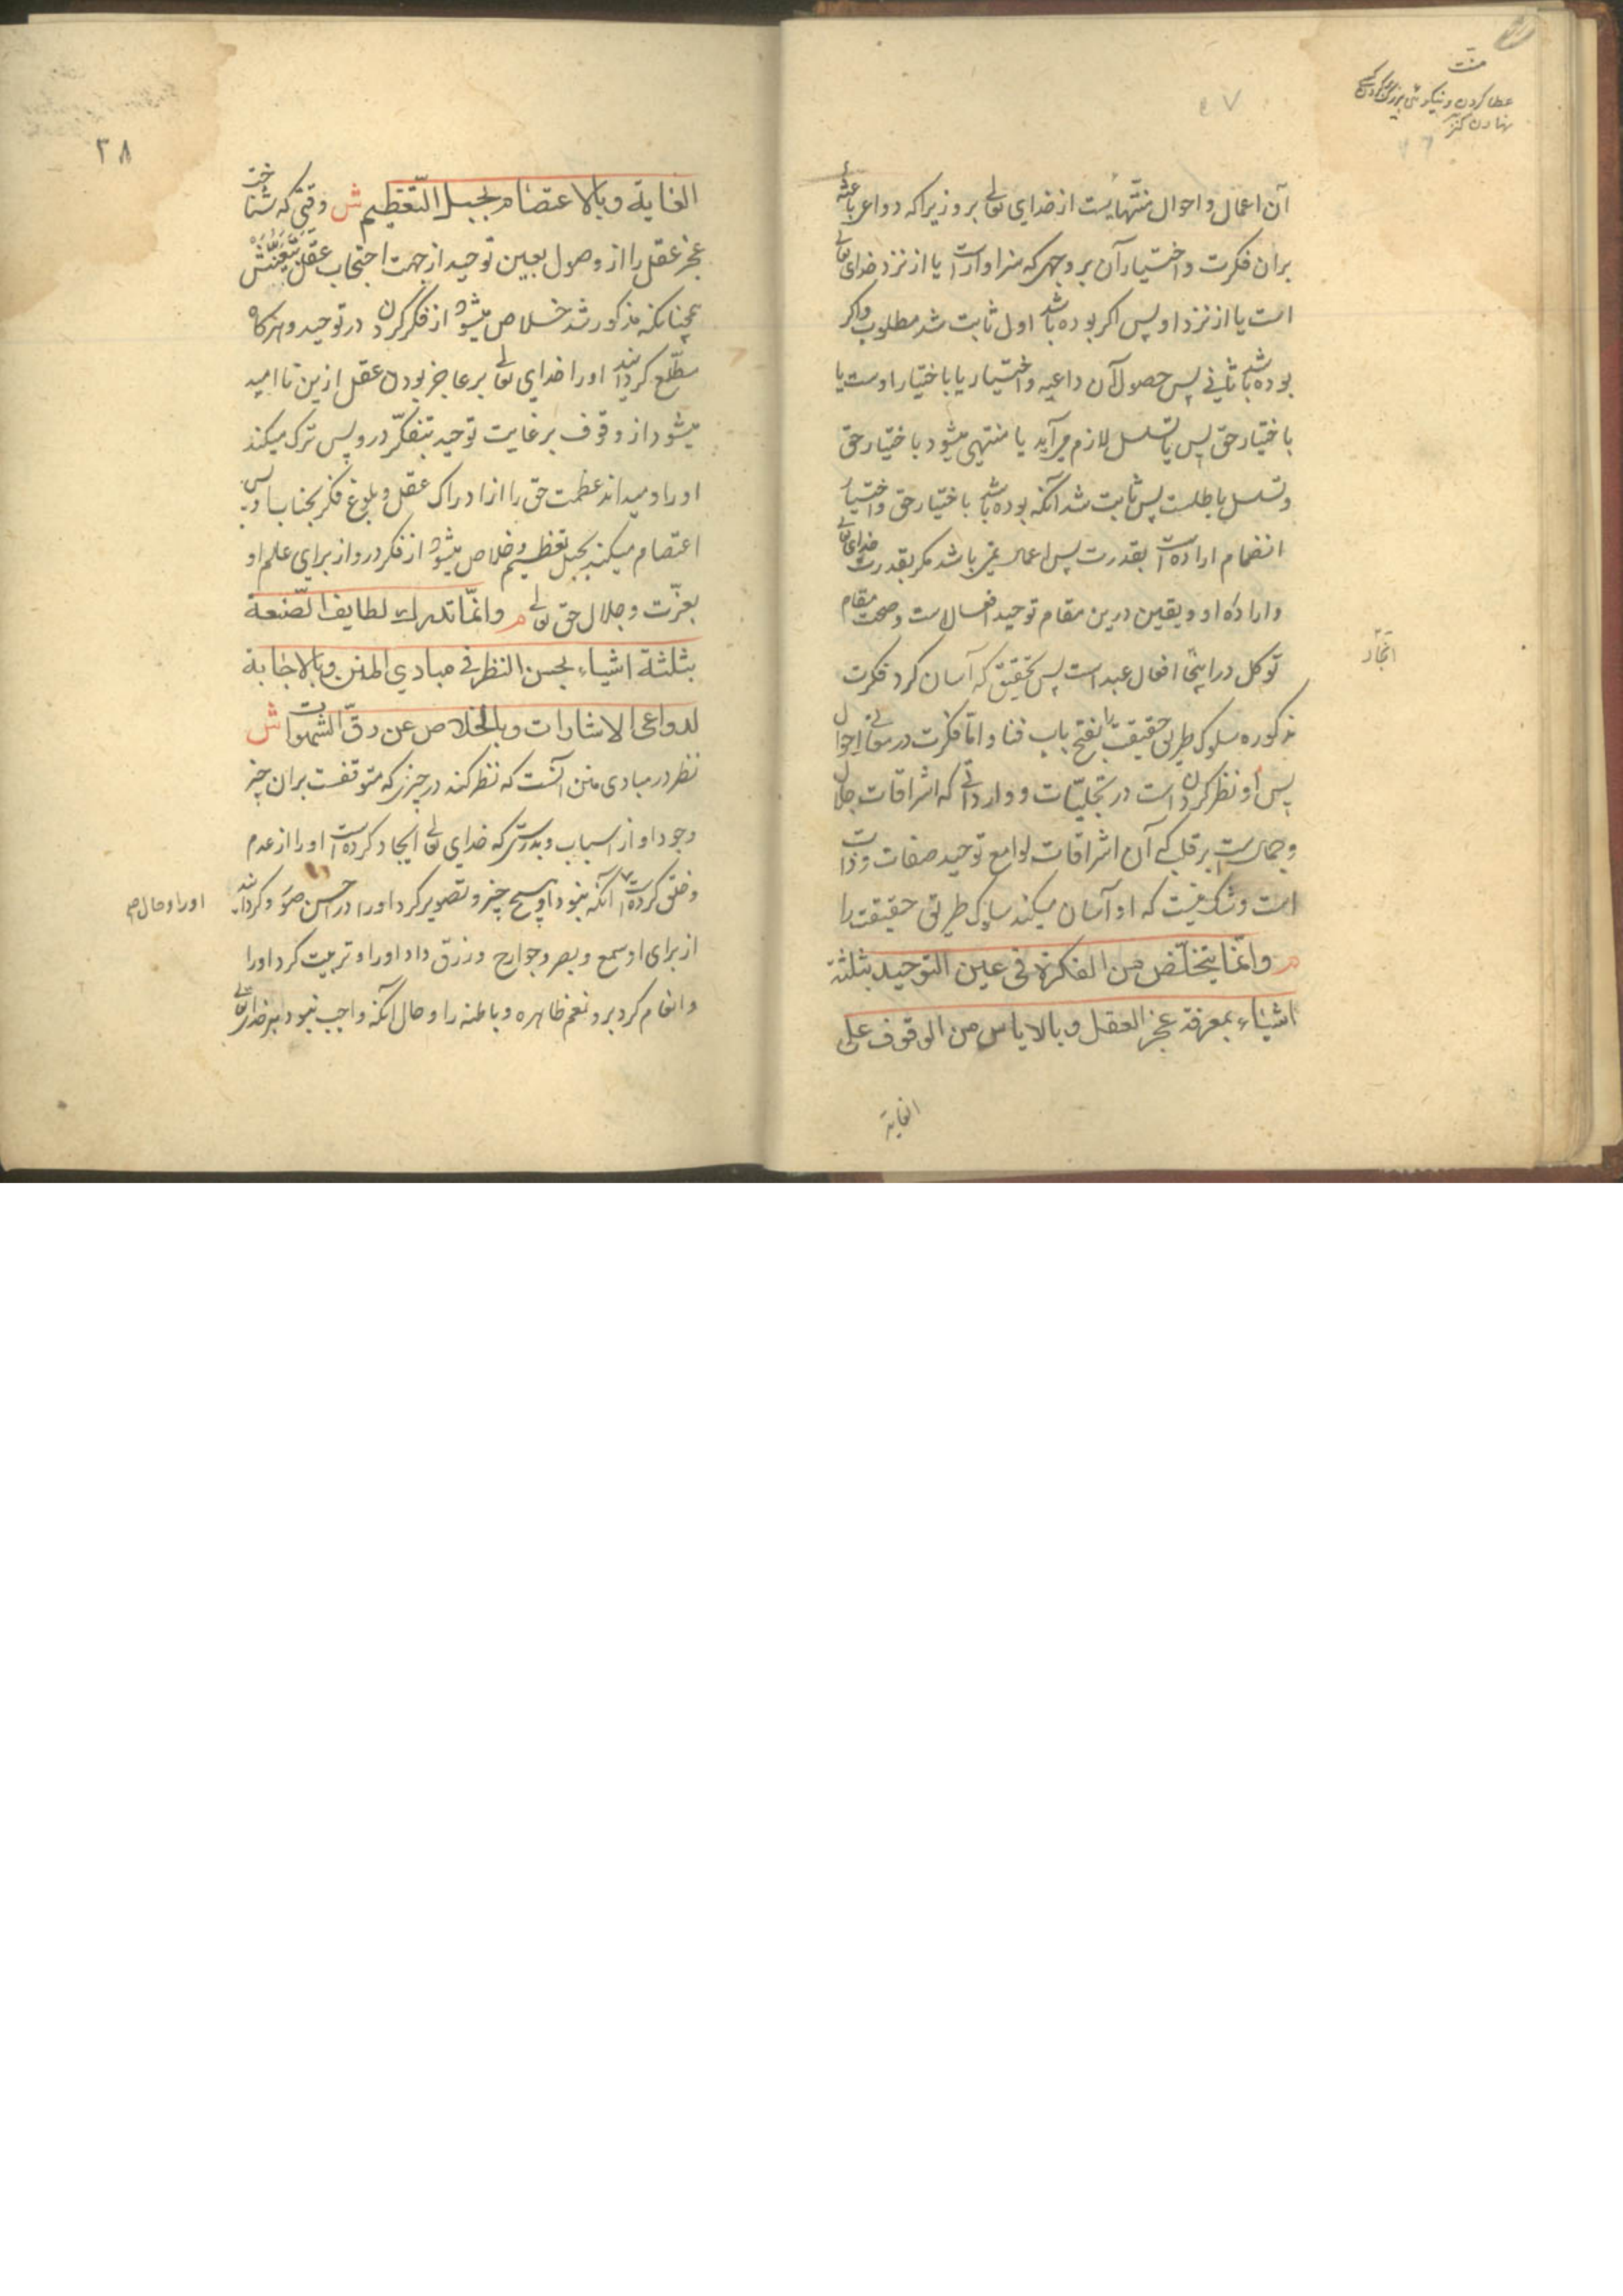 منت
عطا کردن و نیکوئی بزرگ کردن کسی
نهادن کنز
آن اعمال و احوال منتهایست از خدای تعالی برو زیرا که دواعی باعثهٔ
بران فکرت و اختیار آن بر وجهی که سزاوارست یا از نزد خدای تعالی
است یا از نزد او پس اکر بوده باشد اول ثابت شد مطلوب و اکر
بوده باشد ثانی پس حصول آن داعیه و اختیار یا باختیار اوست یا
باختیار حق پس یا تسلسل لازم می‌آید یا منتهی میشود باختیار حق
و تسلسل باطلست پس ثابت شد آنکه بوده باشد باختیار حق و اختیار
انضمام اراده است بقدرت پس اعمال نمی‌باشد مکر بقدرت خدای تعالی
و ارادهٔ او و یقین درین مقام توحید افعال است و صحت مقام
توکل در اینجا افعال عبد است پس بتحقیق که آسان کرد فکرت
اتجار
مذکوره سلوک طریق حقیقت را بفتح باب فنا و اما فکرت در معانی احوال
پس او نظر کردن است در تجلیات و وارداتی که اشراقات جلال
و جمالست بر قلب که آن اشراقات لوامع توحید صفات و ذات
است و شک نیست که او آسان میکند سلوک طریق حقیقت را
م وانّما یتخلّص من الفکرة فی عین التوحید بثلثة
اشیاء بمعرفة عجز العقل و بالایاس من الوقوف علی
الغایة
٣٨
الغایة و بالاعتصام بحبل التّعظیم ش وقتی که شناخت
عجز عقل را از وصول بعین توحید از جهت احتجاب عقل بتعینش
همچنانکه مذکور شد خلاص میشود از فکر کردن در توحید و هرکاه
مطّلع کردانید او را خدای تعالی بر عاجز بودن عقل ازین ناامید
میشود از وقوف بر غایت توحید بتفکّر درو پس ترک میکند
او را و میداند عظمت حق را از ادراک عقل و بلوغ فکر بجناب او پس
اعتصام میکند بحبل تعظیم و خلاص میشود از فکر درو از برای علم او
بعزّت و جلال حق تعالی م وانّما تدرک لطایف الصّنعة
بثلثة اشیاء بحسن النظر فی مبادی المنن و بالاجابة
لدواعی الاشارات و بالخلاص عن رقّ الشهوات ش
نظر در مبادی منن آنست که نظر کند در چیزی که متوقفست بران چیز
وجود او از اسباب و بدرستی که خدای تعالی ایجاد کرده است او را از عدم
و خلق کرده است آنکه نبود او هیچ چیز و تصویر کرد او را در احسن صور و کردانید
او را و حال
از برای او سمع و بصر و جوارح و رزق داد او را و تربیت کرد او را
و انعام کرد برو نعم ظاهره و باطنه را و حال آنکه واجب نبود بر خدای تعالی